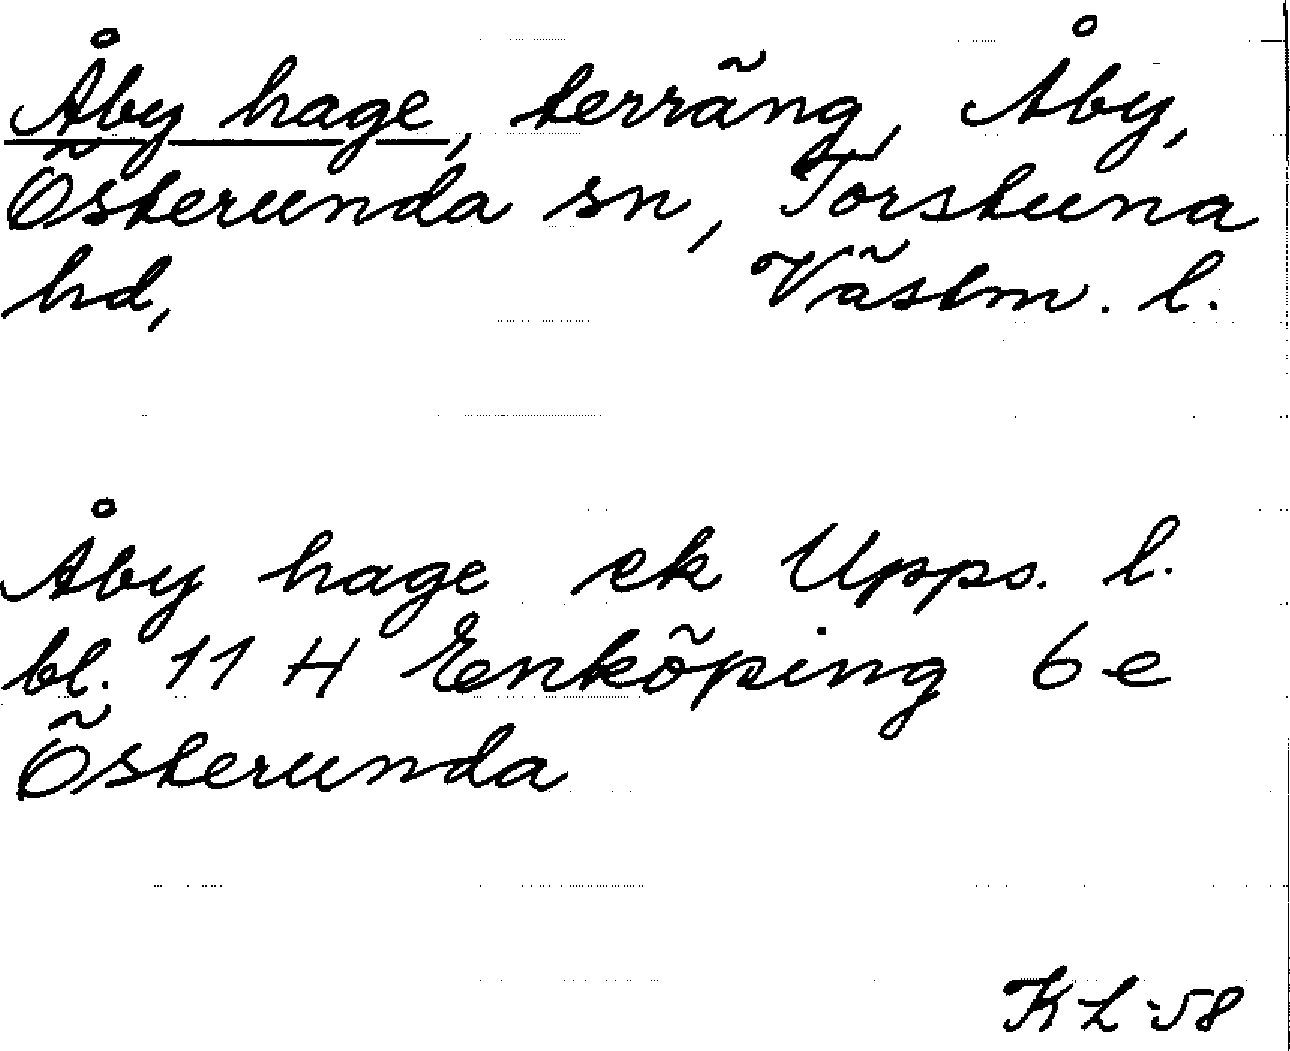 Åby hage, terräng, Åby,
Österunda sn, Torstuna
hd, Västm. l.
Åby hage ek Upps. l.
bl. 11 H Enköping 6 e
Österunda
KL-58